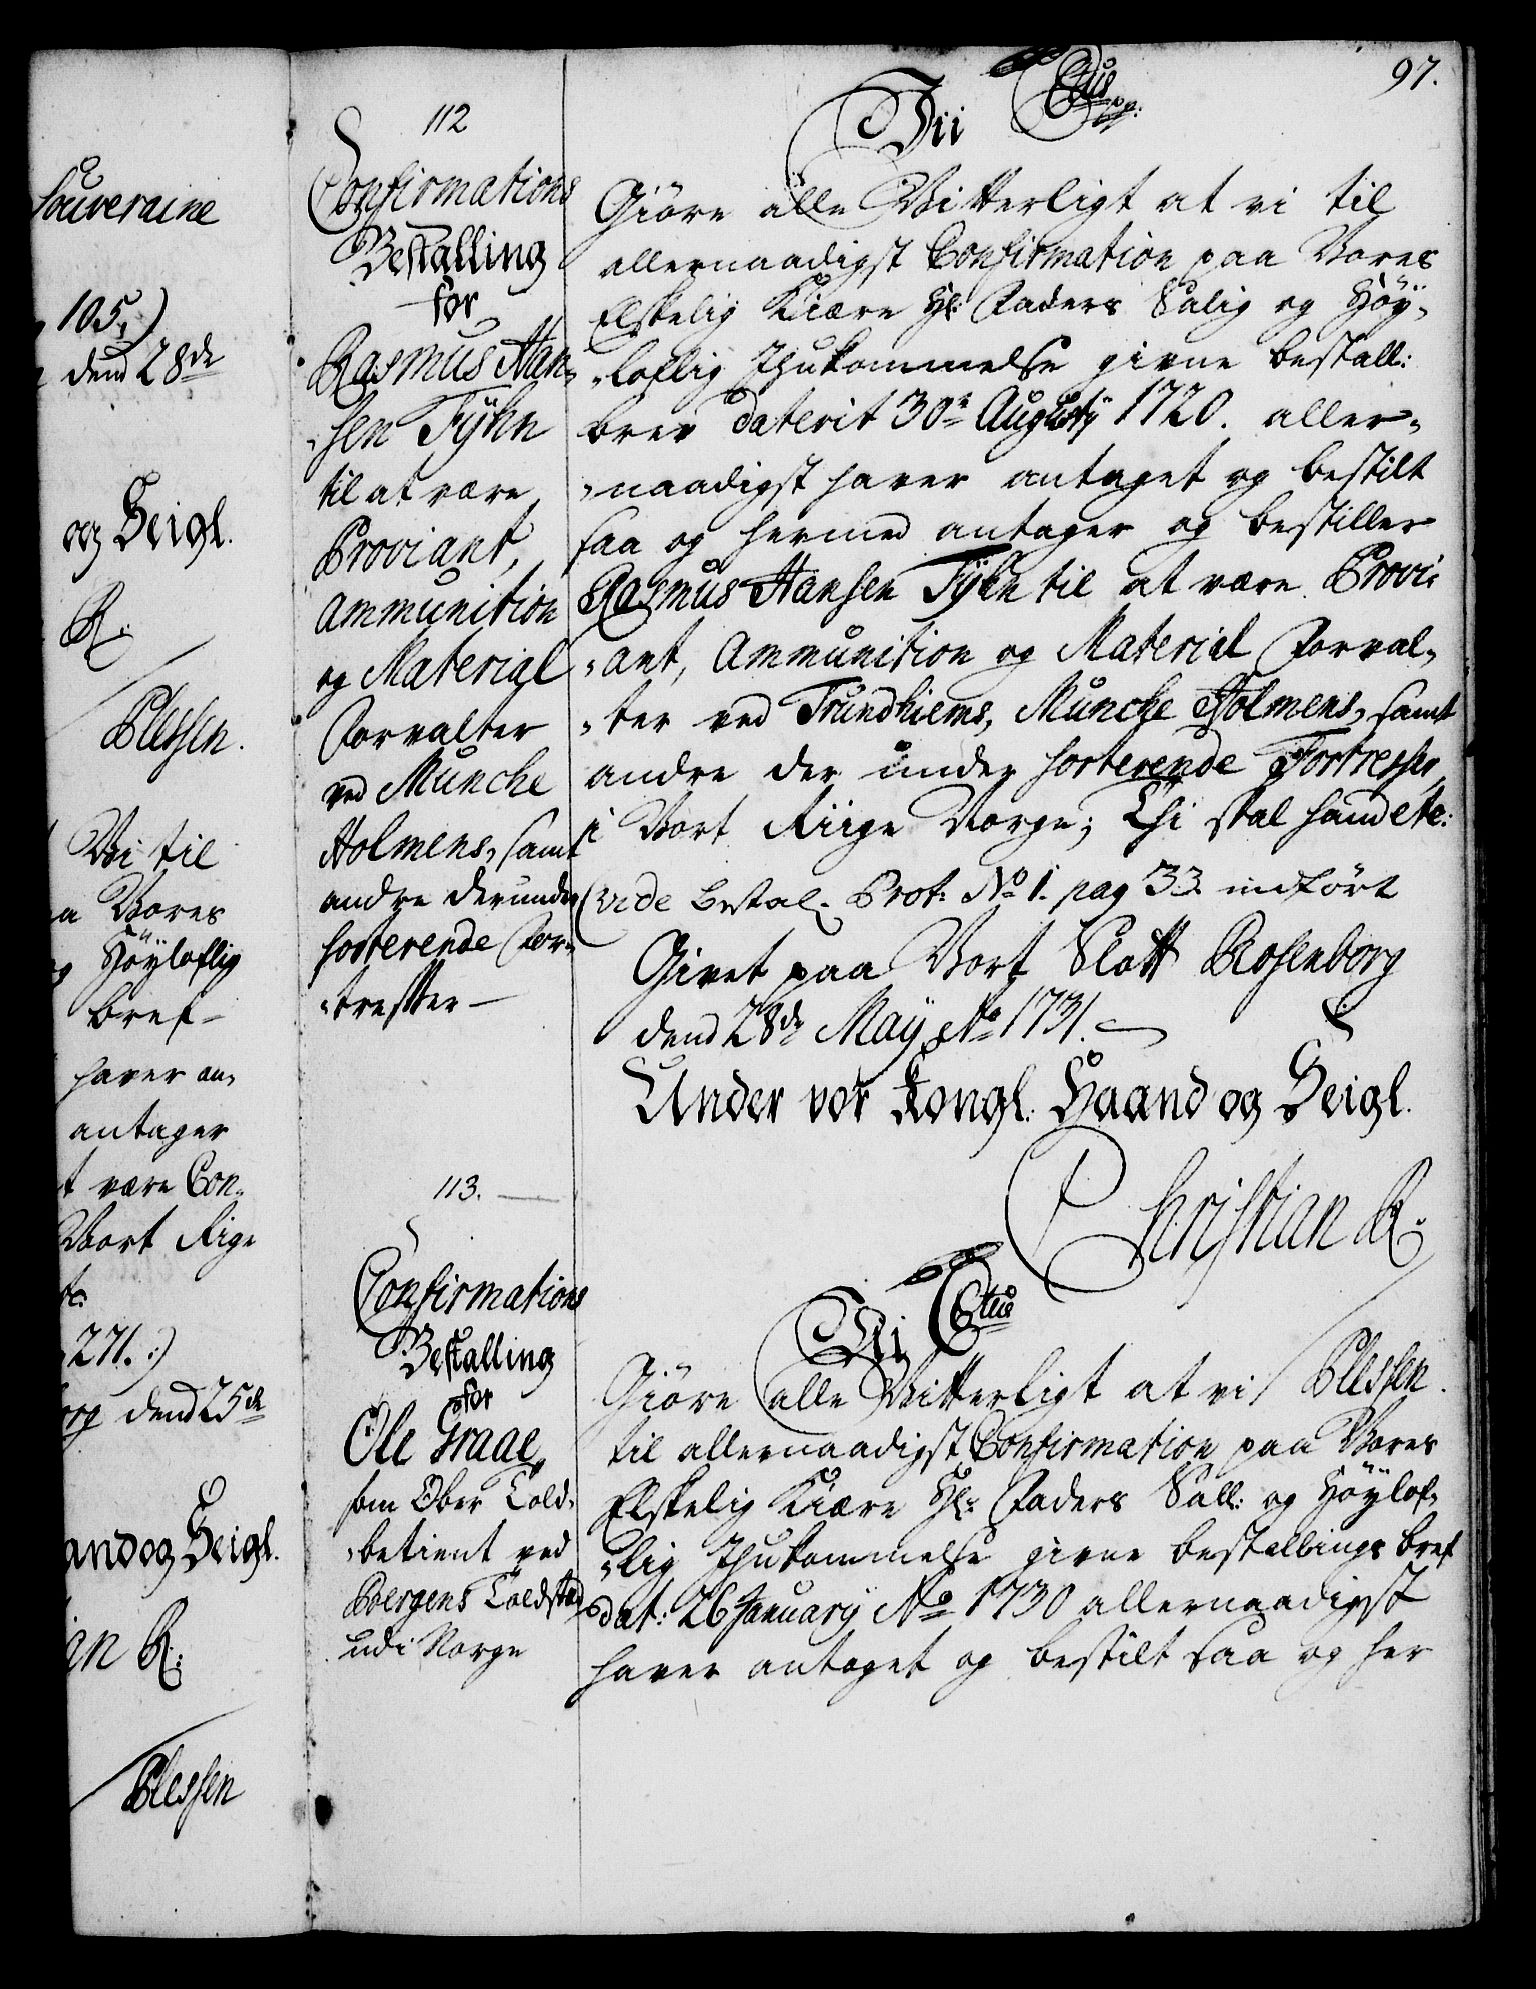 Souveraine
105,)
dend 28de
og Seigl.
R.
Plessen.
Vi til
Vores
Höyloflig
bref
haver an„
antager
t være Con„
Vort Rige
271.:)
dend 25de
and og Seigl.
R:
Plessen
97.
112
Confirmations
Bestalling
for
Rasmus Han„
„sen Fÿhn
til at være
Proviant,
Ammunition
og Material
Forvalter
ved Munche
Holmens, samt
andre derunder
sorterende For„
„tresser
Vii Ctus pp:
Giöre alle Vitterligt at vi til
allernaadigst Confirmation paa Vores
Elskelig Kiære Hr: Faders Salig og Höÿ„
„loflig Ihukommelse givne bestall:
brev daterit 30te Augustÿ 1720. aller„
„naadigst haver antaget og bestilt
saa og hermed antager og bestiller
Rasmus Hansen Fÿhn til at være Provi:
„ant, Ammunition og Material Forval„
„ter ved Trundhiems, Munche Holmens, samt
andre der under sorterende Fortresser
i Vort Riige Norge; Thi skal hand etc:
(vide Bestal. Prot: No 1. pag 33. indfört
Givet paa Vort Slott Rosenborg
dend 28de Maÿ Ao 1731.
Under vor Kongl: Haand og Seigl.
Christian R.
Plessen.
113.
Confirmations
Bestalling
for
Ole Graae,
som Ober Told„
„betient ved
Bergens Toldsted
udi Norge
Vi Ctus
Giöre alle Vitterligt at vi
til allernaadigst Confirmation paa Vores
Elskelig Kiære Hr: Faders Sall: og Höÿlof„
„lig Ihukommelse givne bestallings bref
dat: 26 Januarÿ Ao 1730 allernaadigst
haver antaget og bestilt saa og her